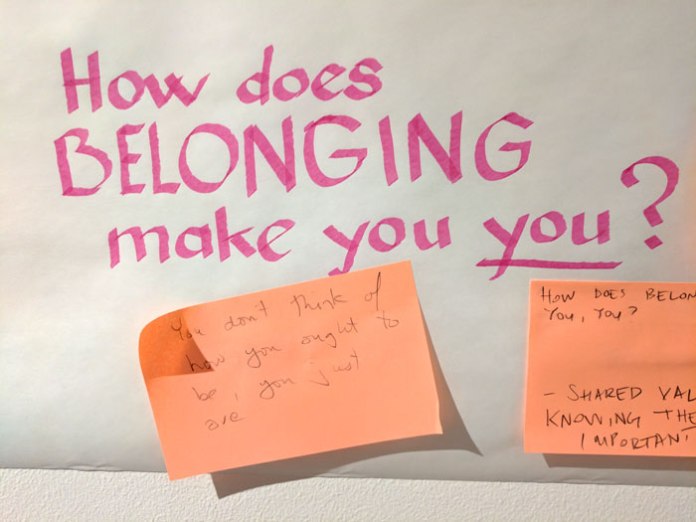 How does
BELONGING
make you you?
You don't think of
how you ought to
be, you just
are
HOW DOES BELON
YOU, YOU?
- SHARED VAL
KNOWING THE
IMPORTAN